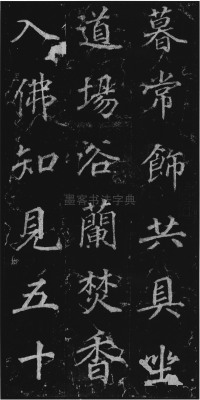 暮常飾共具坐
道場谷蘭焚香
入佛知見五十
墨客书法字典